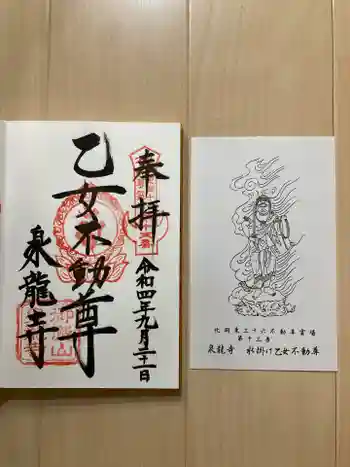 奉拝
乙女不動尊
泉龍寺
令和四年九月二十一日
北関東三十六不動尊霊場
第十三番
泉龍寺 水掛け乙女不動尊